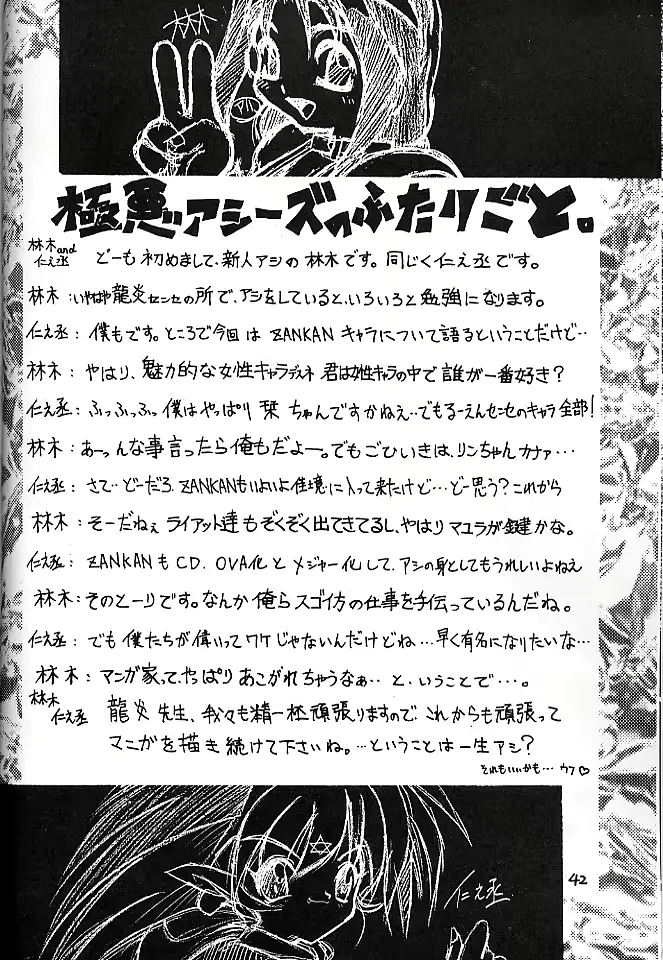 極悪アシーズのふたりごと。
林木and
仁え丞 どーも初めまして、新人アシの林木です。同じく仁え丞です。
林木:いやはや龍炎センセの所で、アシをしていると、いろいろと勉強になります。
仁え丞:僕もです。ところで今回はZANKANキャラについて語るということだけど‥
林木:やはり、魅力的な女性キャラデスネ 君は女性キャラの中で誰が一番好き?
仁え丞:ふっふっふっ僕はやっぱり栞ちゃんですかねえ‥でもるーえんセンセのキャラ全部!
林木:あーっんな事言ったら俺もだよー。でもごひいきは、リンちゃんカナァ…
仁え丞:さて‥どーだろ、ZANKANもいよいよ佳境に入って来たけど…どー思う?これから
林木:そーだねぇライアット達もぞくぞく出てきてるし、やはりマユラが鍵かな。
仁え丞:ZANKANもCD、OVA化とメジャー化して、アシの身としてもうれしいよねえ
林木:そのとーりです。なんか俺らスゴイ方の仕事を手伝っているんだね。
仁え丞:でも僕たちが偉いってワケじゃないんだけどね…早く有名になりたいな…
林木:マンガ家って、やっぱりあこがれちゃうなぁ‥と、いうことで…。
林木
仁え丞 龍炎先生、我々も精一杯頑張りますので、これからも頑張って
マンガを描き続けて下さいね。…ということは一生アシ?
それもいいかも…ウフ♡
42
仁え丞